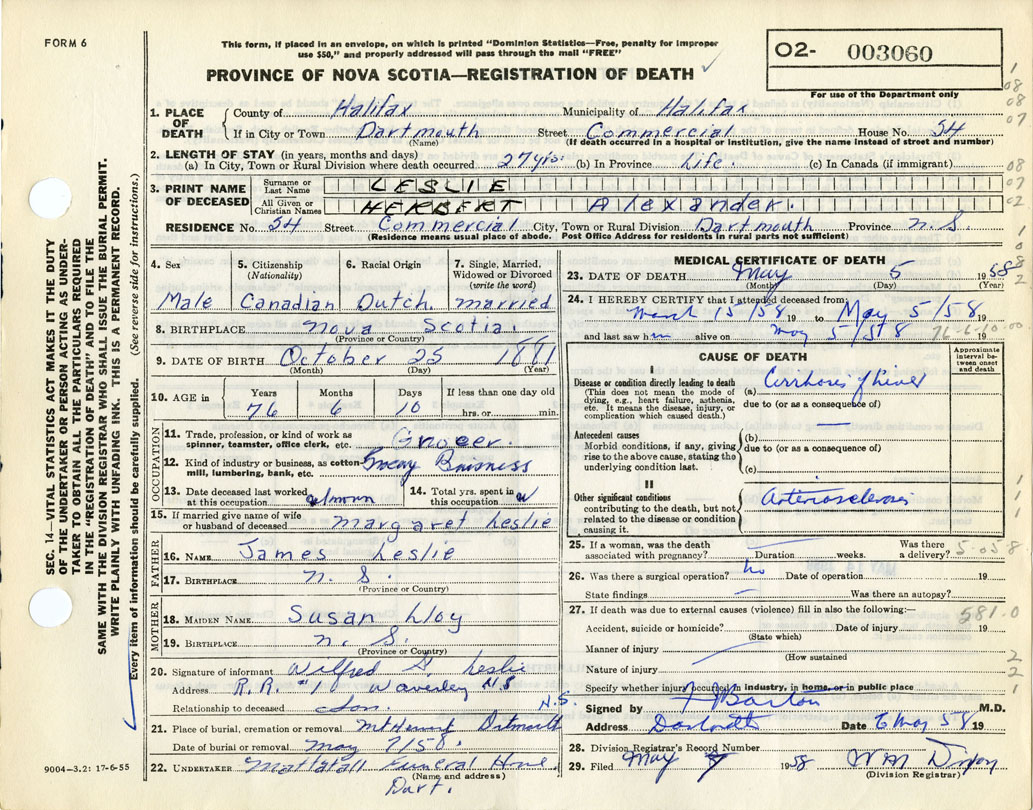 FORM 6
This form, if placed in an envelope, on which is printed "Dominion Statistics—Free, penalty for improper
use $50," and properly addressed will pass through the mail "FREE"
O2- 003060
PROVINCE OF NOVA SCOTIA—REGISTRATION OF DEATH ✓
For use of the Department only
1. PLACE OF DEATH { County of Halifax Municipality of Halifax
If in City or Town Dartmouth Street Commercial House No. 54
(Name) (If death occurred in a hospital or institution, give the name instead of street and number)
2. LENGTH OF STAY (in years, months and days)
(a) In City, Town or Rural Division where death occurred 27 yrs. (b) In Province Life. (c) In Canada (if immigrant)
3. PRINT NAME OF DECEASED
Surname or Last Name LESLIE
All Given or Christian Names HERBERT Alexander.
RESIDENCE No. 54 Street Commercial City, Town or Rural Division Dartmouth Province N.S.
(Residence means usual place of abode. Post Office Address for residents in rural parts not sufficient)
4. Sex Male
5. Citizenship (Nationality) Canadian
6. Racial Origin Dutch.
7. Single, Married, Widowed or Divorced (write the word) married
8. BIRTHPLACE Nova Scotia.
(Province or Country)
9. DATE OF BIRTH October 25 1881
(Month) (Day) (Year)
10. AGE in { Years 76 Months 6 Days 10 If less than one day old
hrs. or min.
OCCUPATION
11. Trade, profession, or kind of work as spinner, teamster, office clerk, etc. Grocer.
12. Kind of industry or business, as cotton-mill, lumbering, bank, etc. Grocery Business
13. Date deceased last worked at this occupation
14. Total yrs. spent in this occupation
15. If married give name of wife or husband of deceased Margaret Leslie
FATHER
16. NAME James Leslie
17. BIRTHPLACE N. S.
(Province or Country)
MOTHER
18. MAIDEN NAME Susan Lloy
19. BIRTHPLACE N. S.
(Province or Country)
20. Signature of informant Wilfred S. Leslie
Address R.R. #1 Waverley N.S
Relationship to deceased Son. N.S.
21. Place of burial, cremation or removal
Date of burial or removal May 7/58.
22. UNDERTAKER Mattatall Funeral Home,
(Name and address)
Dart.
9004—3.2: 17-6-55
MEDICAL CERTIFICATE OF DEATH
23. DATE OF DEATH May 5 1958
(Month) (Day) (Year)
24. I HEREBY CERTIFY that I attended deceased from
March 15/58 19 to May 5/58 19
and last saw him alive on May 5/58 76-6-10-00 19
CAUSE OF DEATH
Approximate interval between onset and death
I
Disease or condition directly leading to death
(This does not mean the mode of dying, e.g., heart failure, asthenia, etc. It means the disease, injury, or complication which caused death.)
(a) Cirrhosis of liver
due to (or as a consequence of)
Antecedent causes
Morbid conditions, if any, giving rise to the above cause, stating the underlying condition last.
(b)
due to (or as a consequence of)
(c)
II
Other significant conditions
contributing to the death, but not related to the disease or condition causing it.
Arteriosclerosis
25. If a woman, was the death associated with pregnancy? Duration weeks. Was there a delivery? 5-058
26. Was there a surgical operation? no Date of operation 19
State findings Was there an autopsy?
27. If death was due to external causes (violence) fill in also the following:— 581.0
Accident, suicide or homicide? Date of injury 19
(State which)
Manner of injury
(How sustained
Nature of injury
Specify whether injury occurred in industry, in home, or in public place
Signed by Barton M.D.
Address Date 6 May 58 19
28. Division Registrar's Record Number
29. Filed May 7 1958
(Division Registrar)
SEC. 14—VITAL STATISTICS ACT MAKES IT THE DUTY
OF THE UNDERTAKER OR PERSON ACTING AS UNDER-
TAKER TO OBTAIN ALL THE PARTICULARS REQUIRED
IN THE "REGISTRATION OF DEATH" AND TO FILE THE
SAME WITH THE DIVISION REGISTRAR WHO SHALL ISSUE THE BURIAL PERMIT.
WRITE PLAINLY WITH UNFADING INK. THIS IS A PERMANENT RECORD.
Every item of information should be carefully supplied. (See reverse side for instructions.)
1
08
08
07
08
07
02
1
0
8
2
1
1
1
2
2
1